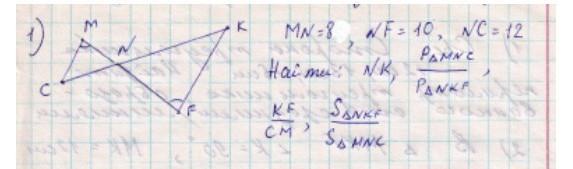 1) M N K C F MN=8, NF=10, NC=12
Найти: NK, P△MNC/P△NKF,
KF/CM, S△NKF/S△MNC